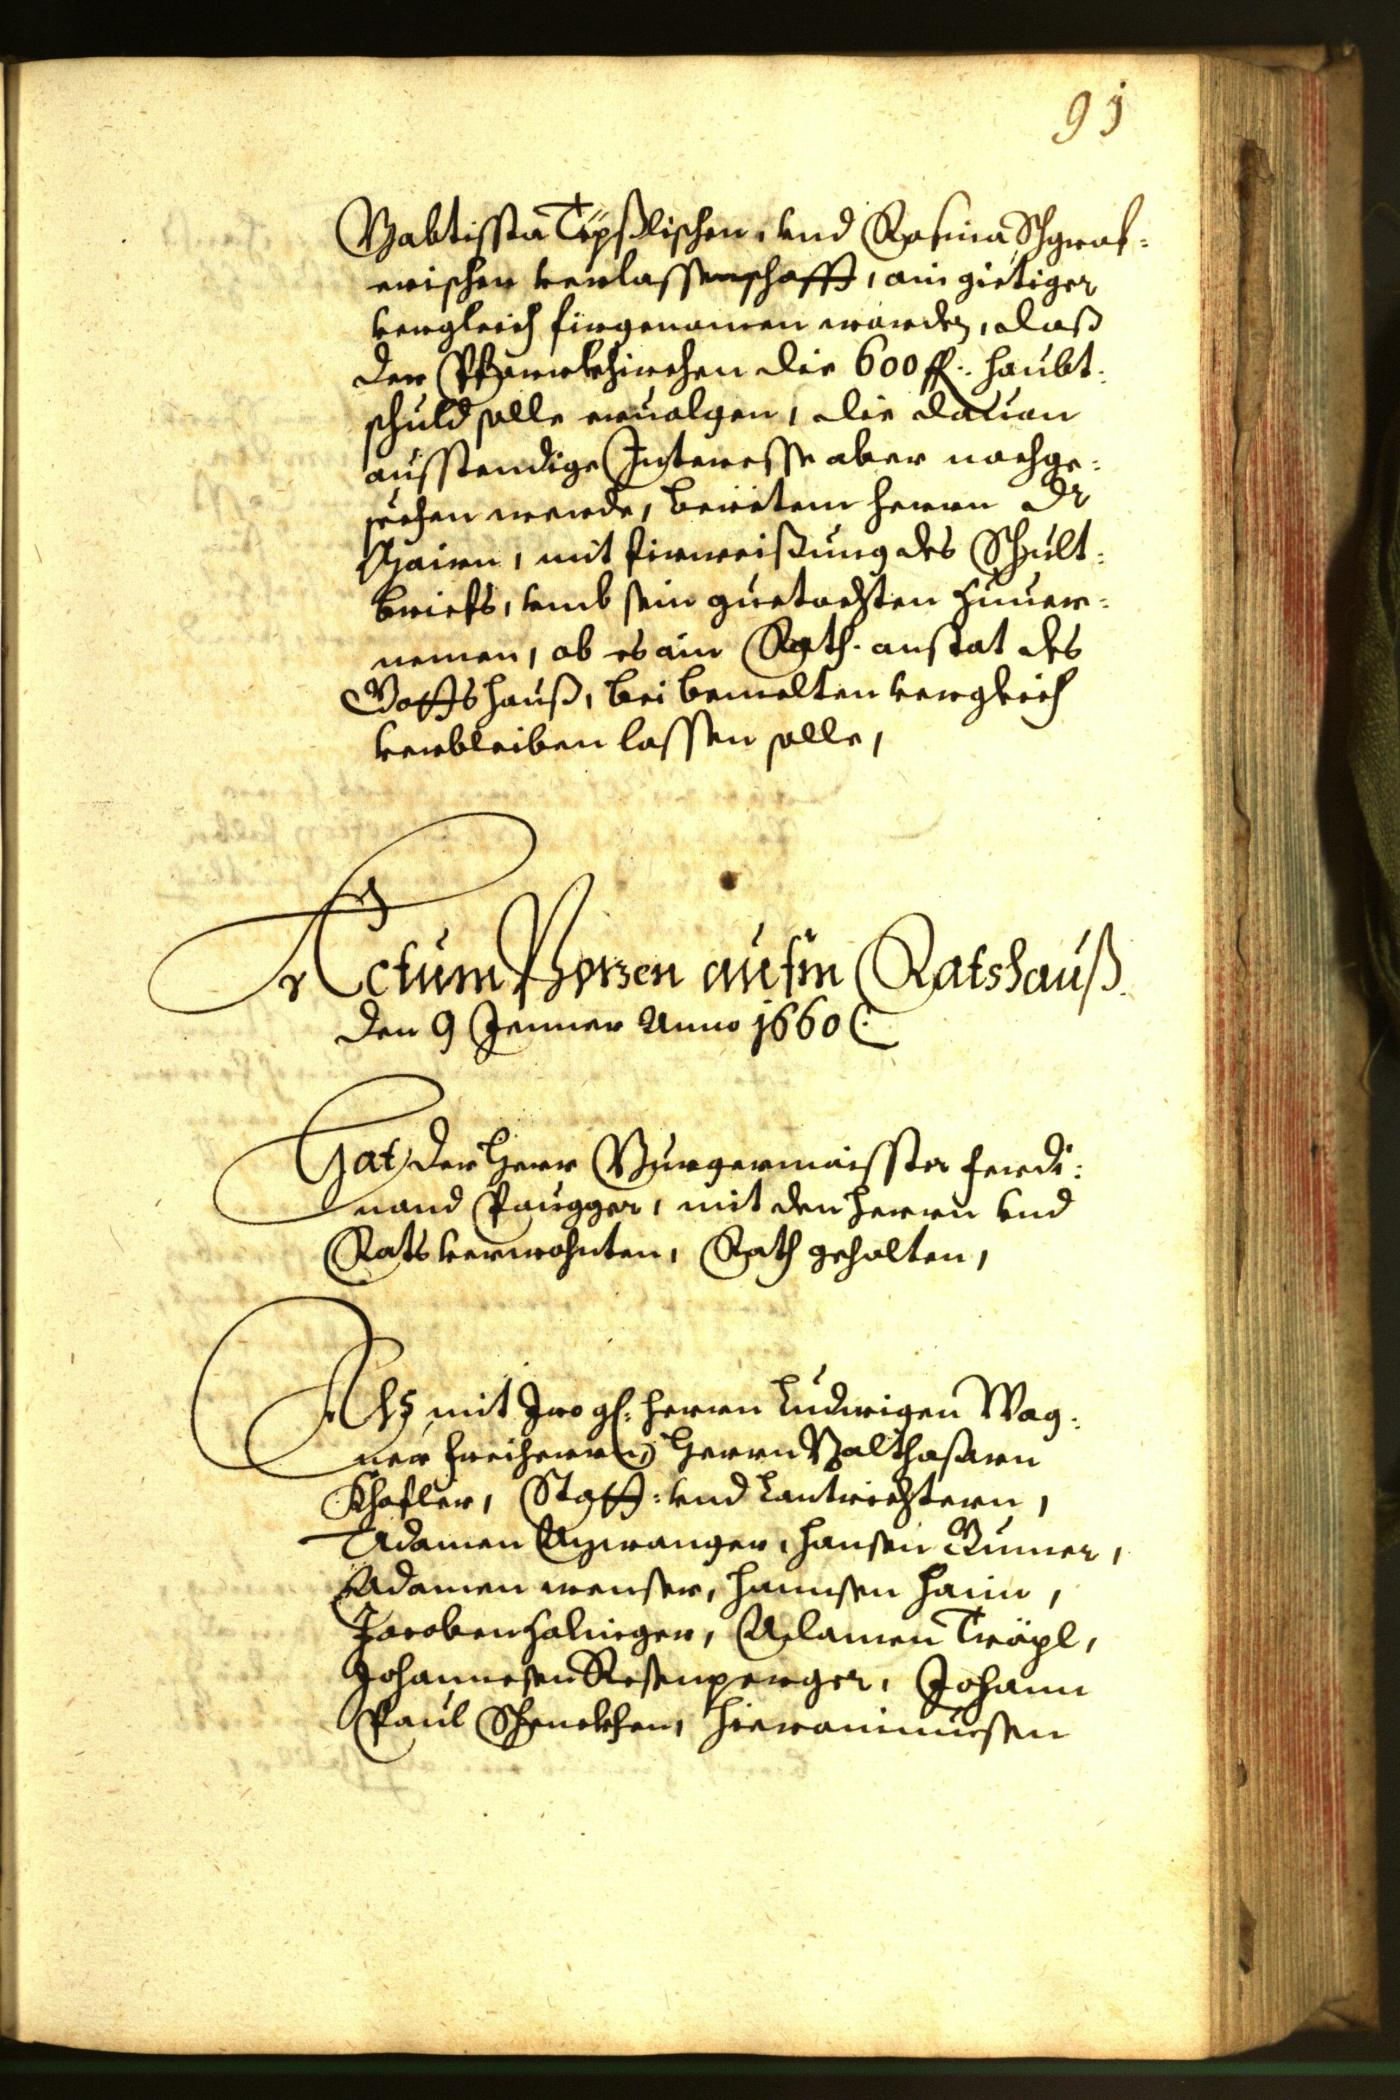 91
Babtista Tÿpßlischen, vnd Rosina Schgraf-
erischen verlassenschafft, ain gietiger
vergleich firgenomen worden, daß
der Pfarrkhirchen die 600 fl: haubt-
schuld solle eruolgen, die dauon
ausstendige Interesse aber nachge-
sechen werde, herrn Dr
mit firweißung des Schult-
briefs, vmb sein guetachten zuuer-
nemen, ob es ain Rath anstat des
Gottshauß, bei bemelten vergleich
verbleiben lassen solle,
Actum Bozen aufm Ratshauß
den 9 Jenner Anno 1660
Hat der Herr Burgermaister Ferdi-
nand Paugger, mit den herrn vnd
Rats verwohnten, Rath gehalten,
Als mit Iro gl: herrn Ludwigen Wag-
ner freiherrn, herrn Balthasarn
Khofler, Statt- vnd Lantrichtern,
Adamen Azwanger, Hansen Rumer,
Adamen wenser, Hannsen Hain,
Jacoben Holzinger, Adamen Träpl,
Johannesen Rosenperger, Johann
Paul Schenckhen, Hieronimussen